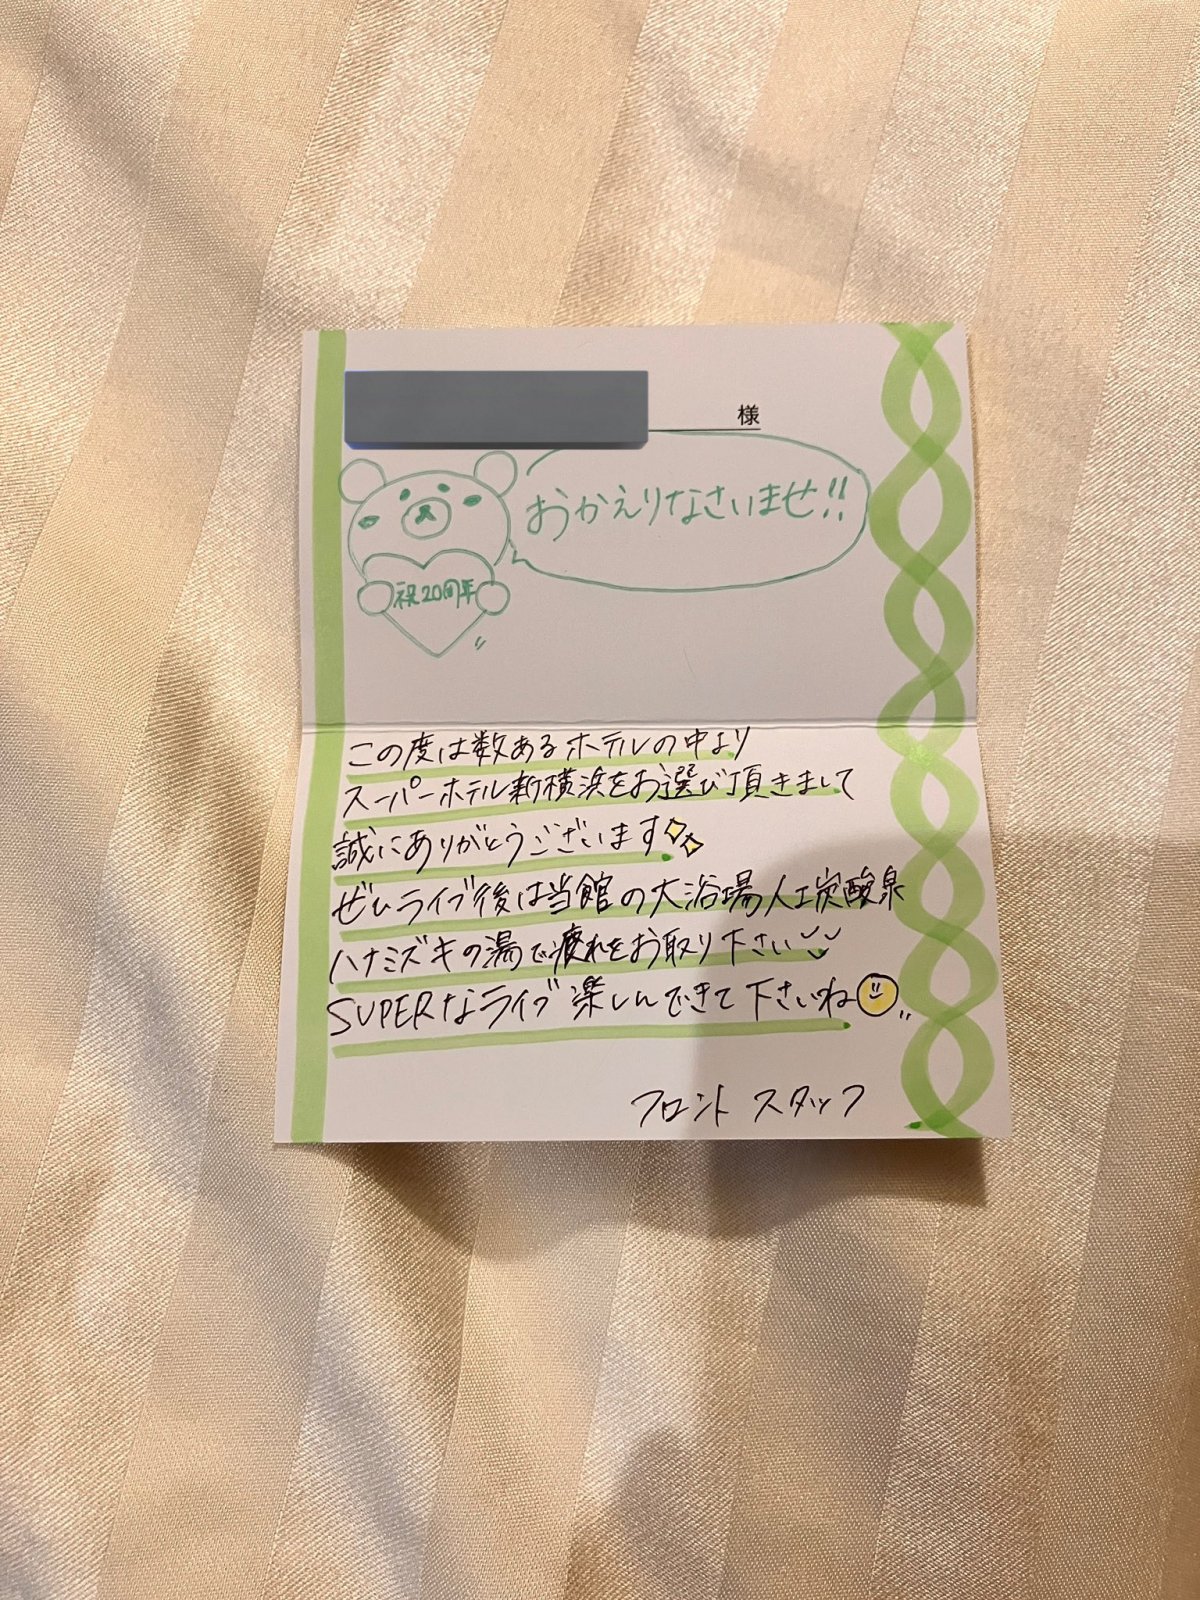 様
おかえりなさいませ!!
祝20周年
この度は数あるホテルの中より
スーパーホテル新横浜をお選び頂きまして
誠にありがとうございます
ぜひライブ後は当館の大浴場人工炭酸泉
ハナミズキの湯で疲れをお取り下さい
SUPERなライブ楽しんできて下さいね
フロントスタッフ